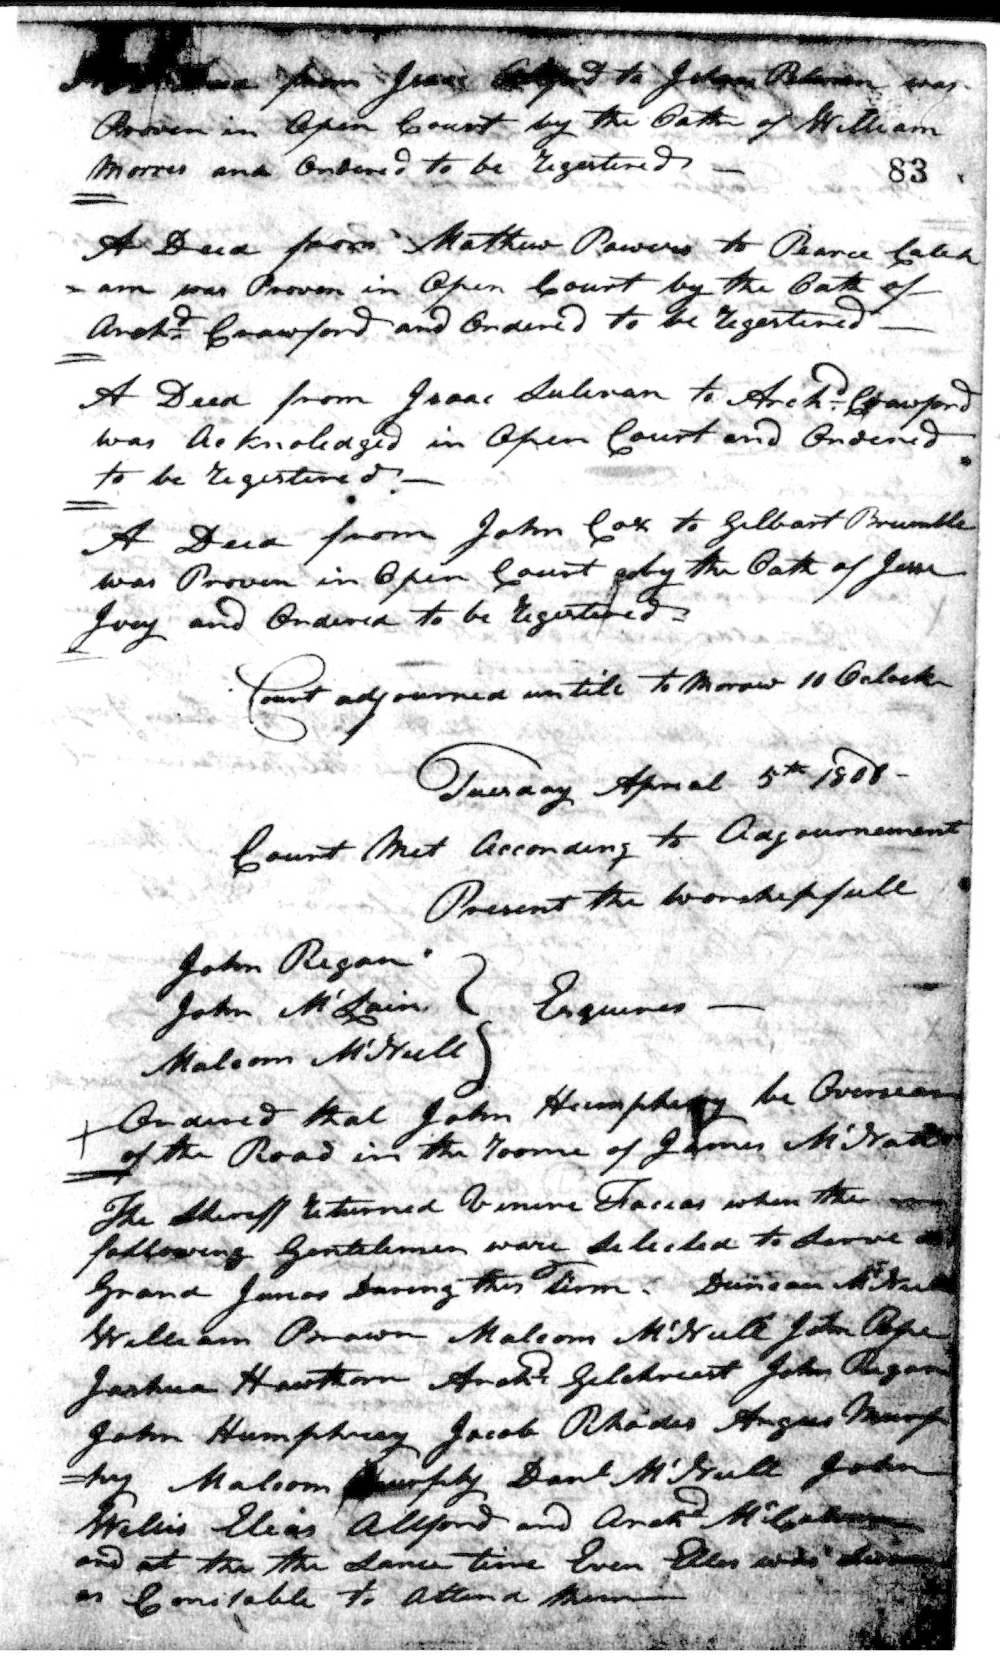 Deed from Isaac to was
Proven in Open Court by the Oath of William
Morres and Ordered to be Regestered —
83
A Deed from Mathew Powers to Pearce Caleh
= am was Proven in Open Court by the Oath of
Archd. Crawford and Ordered to be Regestered —
A Deed from Isaac Sulivan to Archd. Crawford
was Acknoledged in Open Court and Ordered
to be Regestered —
A Deed from John Cox to Gilbart Brumble
was Proven in Open Court by the Oath of Jesse
Ivey and Ordered to be Regestered =
Court adjourned untill to Morow 10 Oclock
Tuesday Aprial 5th 1808 -
Court Met According to Adgournement
Present the Worshepfull
John Regan
John McLain
Esquires —
Malcom McNeill
Ordered that John Humphrey be Overseer
of the Road in the roome of James
The Sheriff returned Venire Facias when the
following Gentelemen ware Selected to Serve as
Grand Juros During this Term. Duncan McNeill
William Brown Malcom McNeill John Pope
Joshua Hawthorn Archd. Gilchreest John Regan
John Humphrey Jacob Rhodes Angus Murp
=hy Malcom Murphy Danl McNeill John
Willis Elias Allford and Archd
and at the the Same time Even Elles was Sworn
as Constable to Attend them —